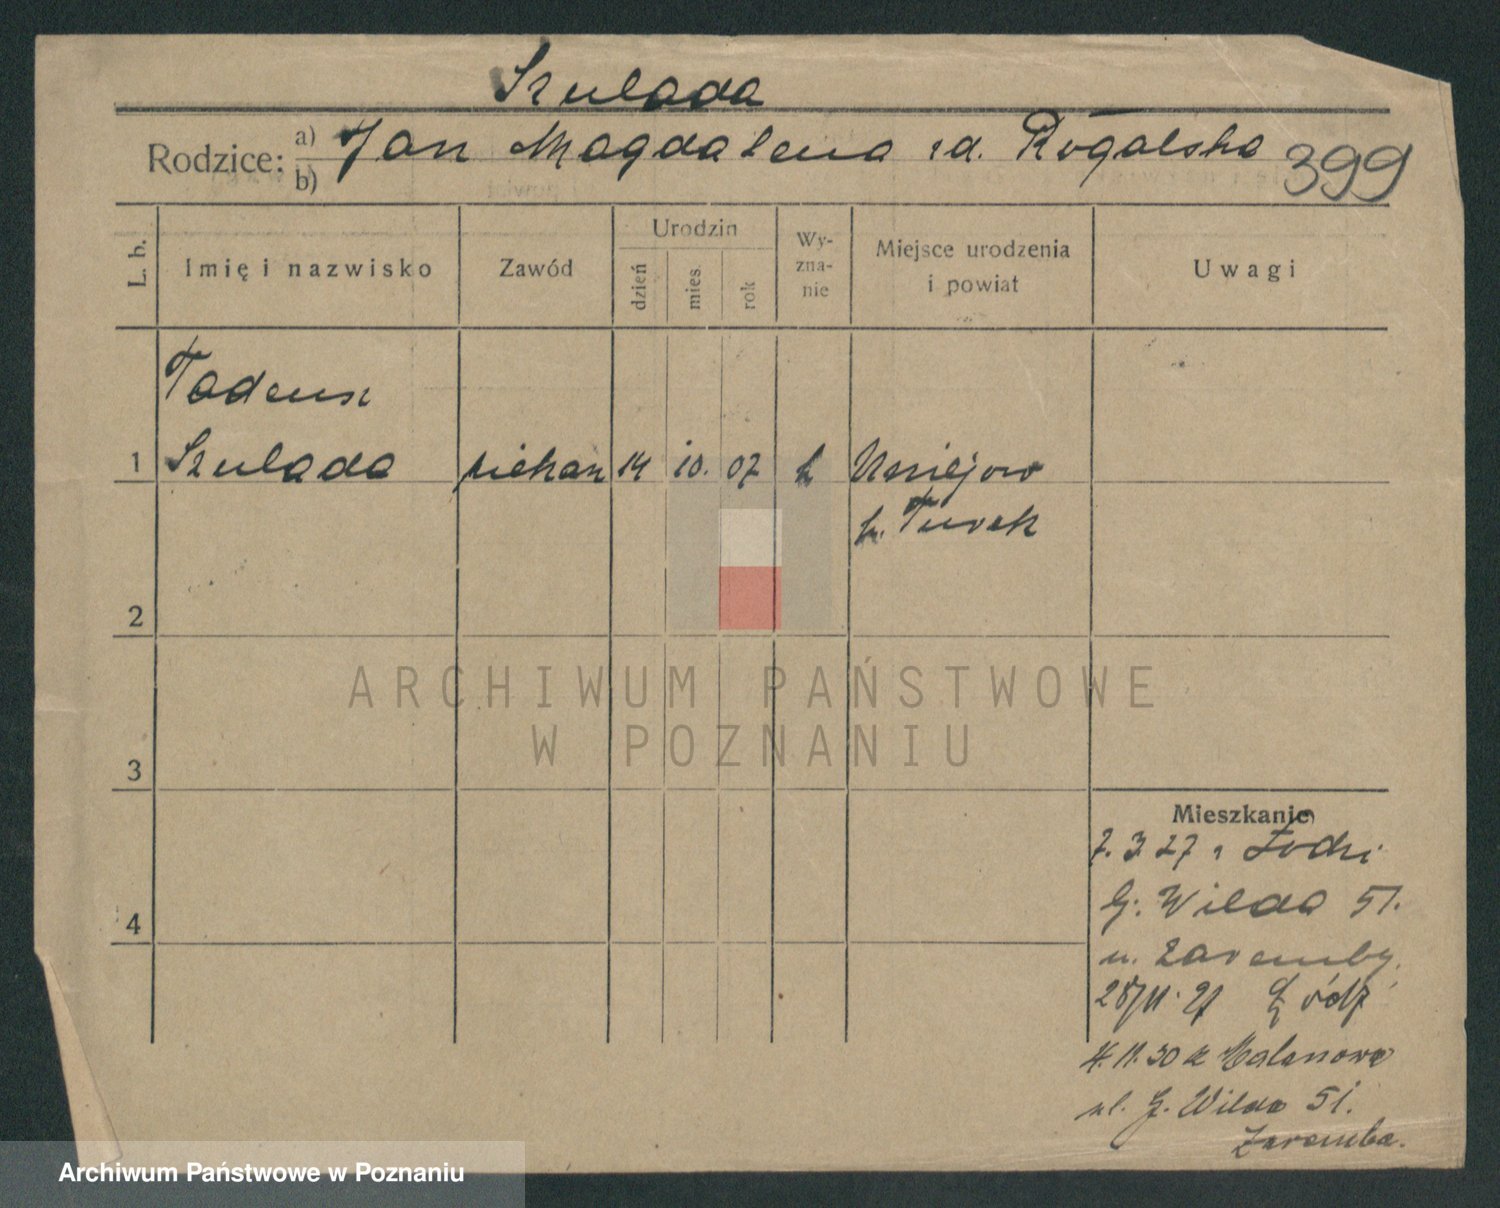 Szulada
Rodzice: a) Jan Magdalena zd. Rogalska 399
b)
L. b.
Imię i nazwisko
Zawód
Urodzin
dzień
mies.
rok
Wy-
zna-
nie
Miejsce urodzenia
i powiat
Uwagi
Tadeusz
1 Szulada piekarz 14 10. 07 k Uniejow
k. Turek
2
3
4
Mieszkanie
7. 3. 27 z Łodzi
G. Wilda 51.
u. Zaremby.
28/11. 27 Łódź
4. 11. 30 z Malanowa
ul. G. Wilda 51.
Zaremba.
ARCHIWUM PAŃSTWOWE
W POZNANIU
Archiwum Państwowe w Poznaniu